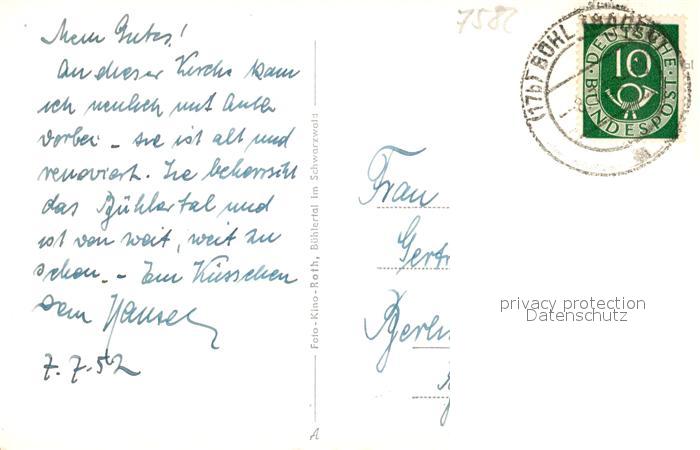 7582
Mein Gutes!
An dieser Kirche kam
ich neulich mit Auto
vorbei - sie ist alt und
renoviert. Sie beherrscht
das Bühlertal und
ist von weit, weit zu
sehen. - Ein Küsschen
Dein Hansel
7.7.52
Foto-Kino-Roth, Bühlertal im Schwarzwald
A
(17b) BÜHL (BADEN)
DEUTSCHE
10
BUNDESPOST
Frau
Gertr
Berlin
privacy protection
Datenschutz